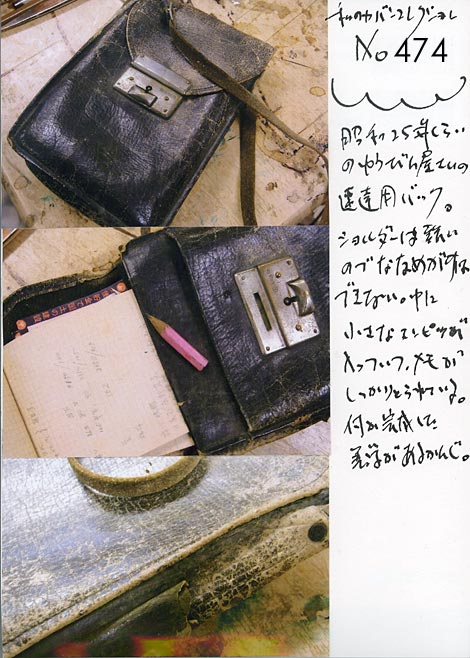 私のカバンコレクション
No 474
昭和25年くらい
のゆうびん屋さんの
速達用バック。
ショルダーは短い
のでななめがけは
できない。中に
小さなエンピツが
入っていて、メモが
しっかりとられている。
何か完成した
美学があるかんじ。